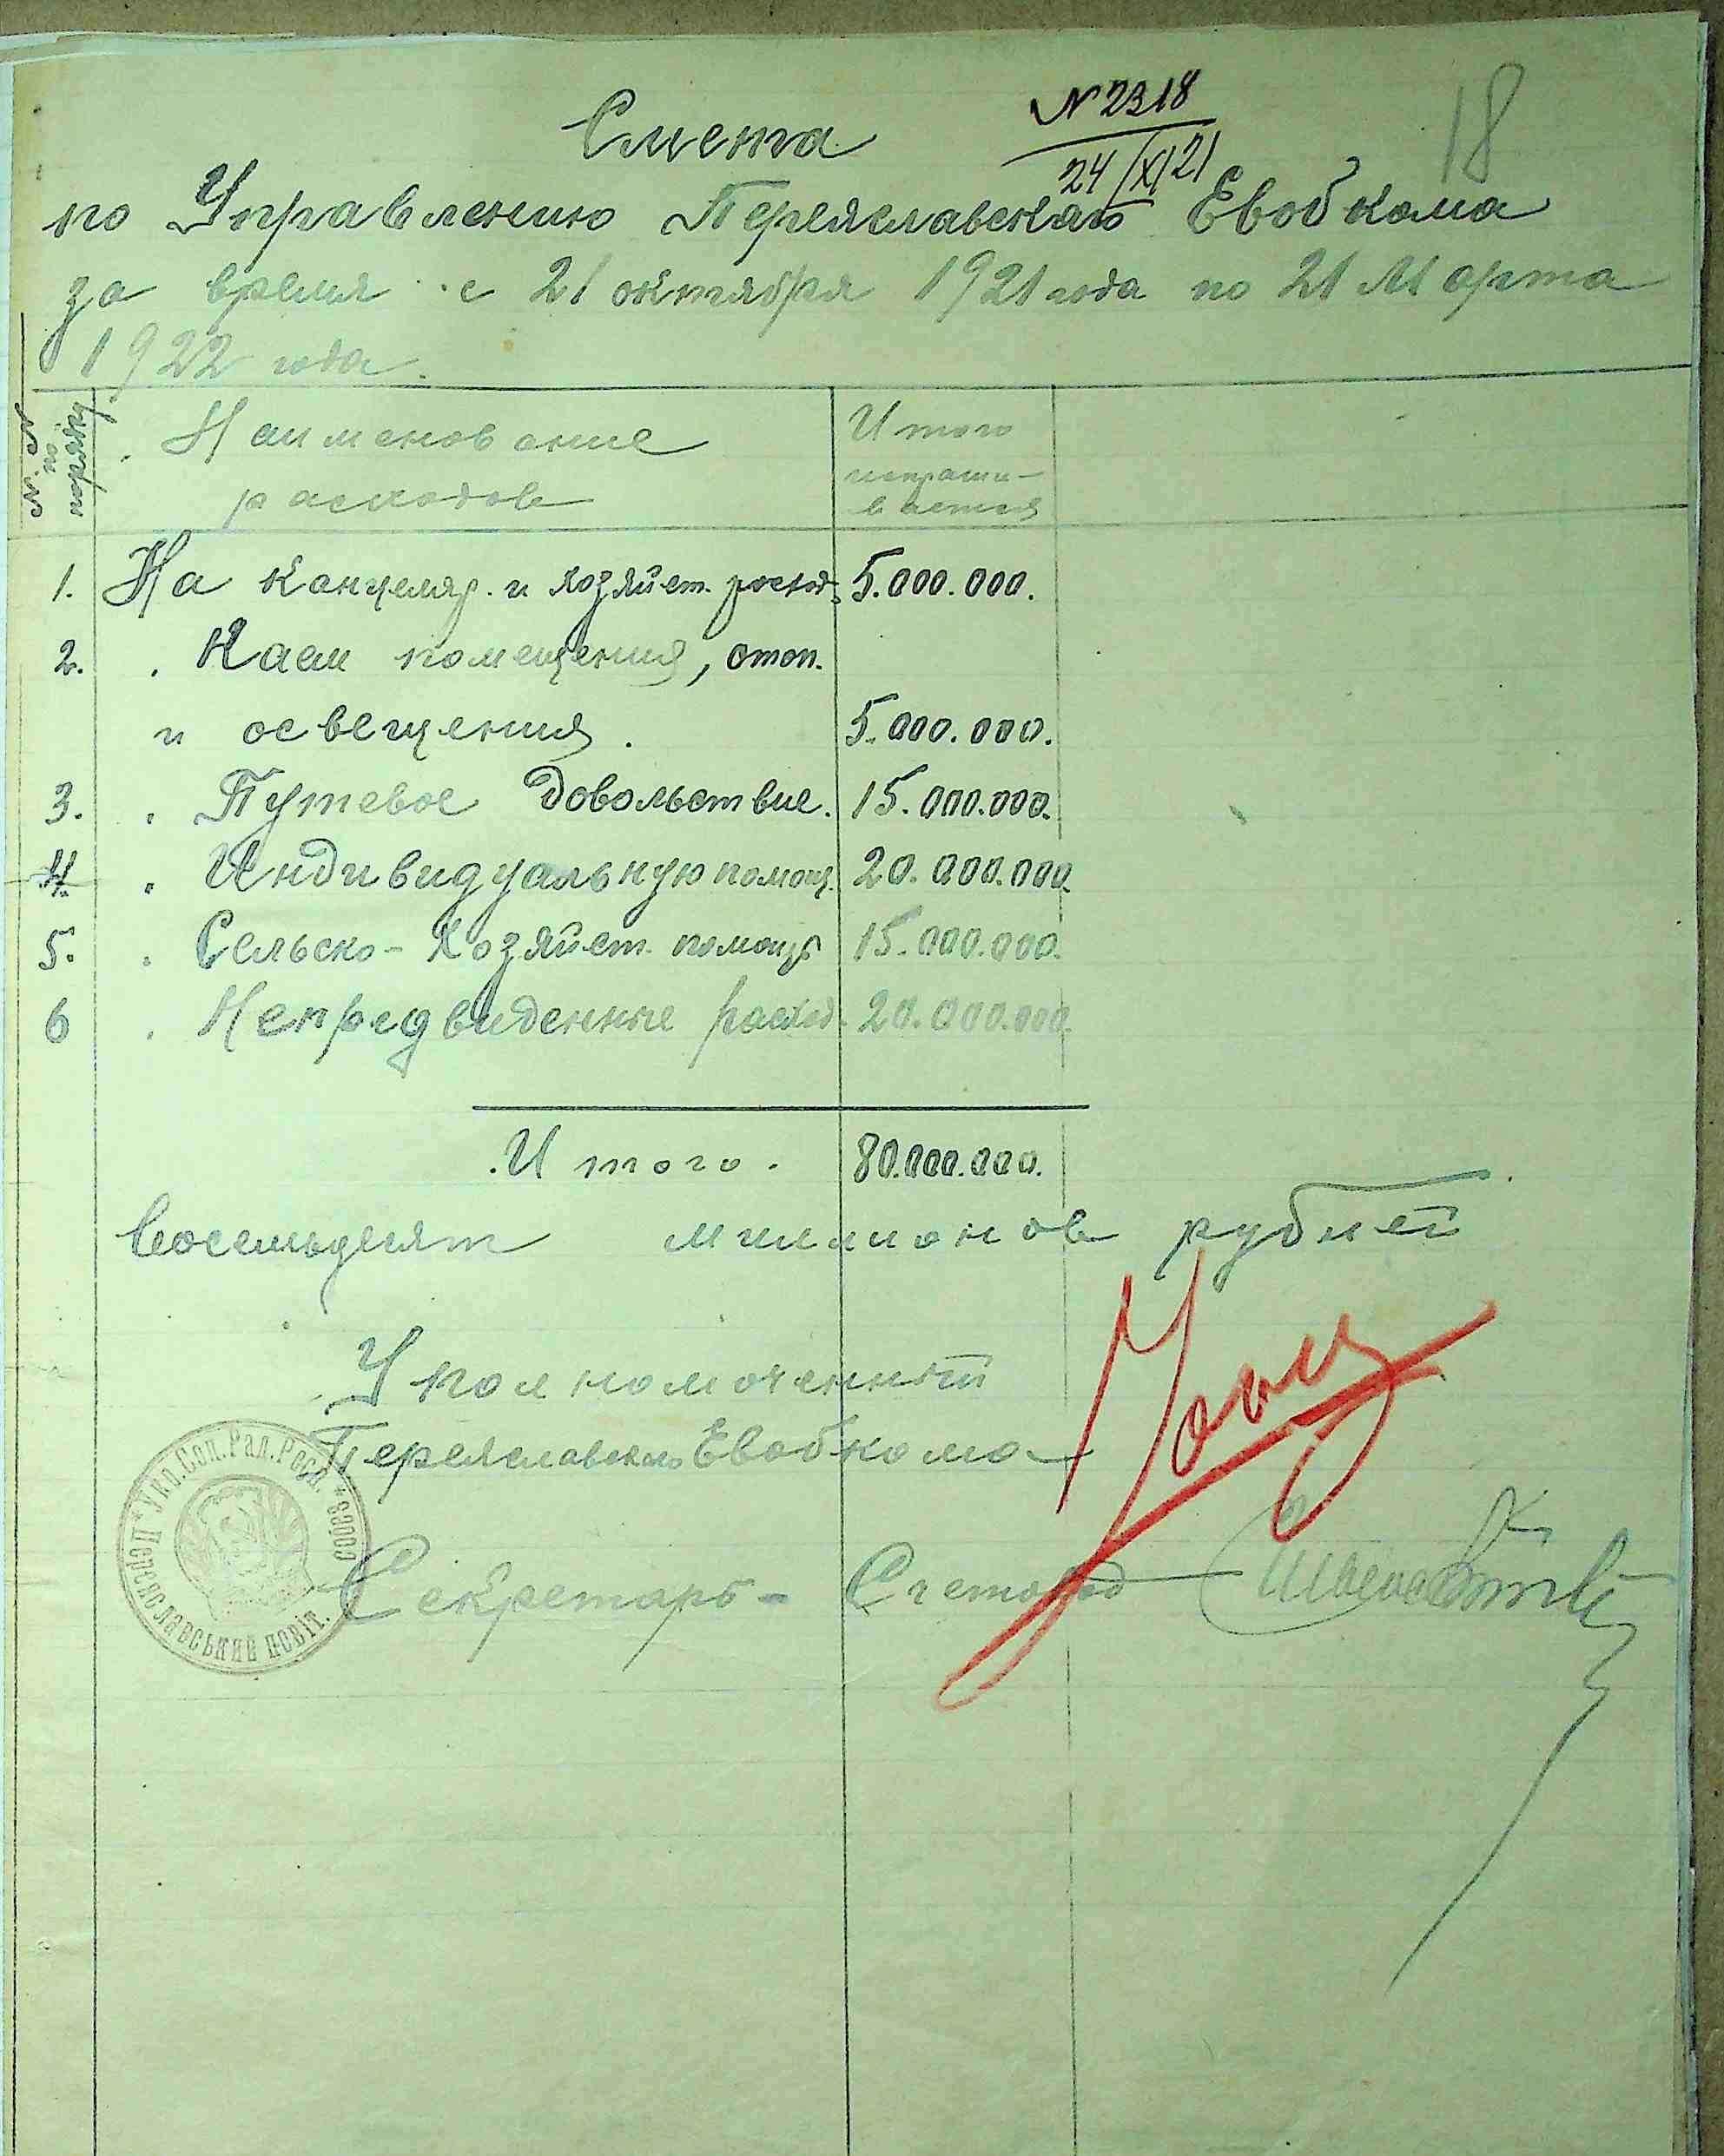 18
Смета
N 2318
24/XI 21
по Управлению Переяславскаго Евобкома
за время с 21 октября 1921 года по 21 Марта
1922 года.
№№ по порядку
Наименование
расходов
Итого
испраши-
вается
1. На канцеляр. и хозяйст. расход. 5.000.000.
2. " Наем помещения, отоп.
и освещения. 5.000.000.
3. " Путевое довольствие. 15.000.000.
4. " Индивидуальную помощ. 20.000.000.
5. " Сельско-Хозяйст. помощь 15.000.000.
6 " Непредвиденные расход. 20.000.000.
Итого. 80.000.000.
Восемьдесят миллионов рублей
Уполномоченный
Переяславского Евобкома
Секретарь-Счетовод
Укр.Соц.Рад.Респ.
Переяславський повіт.